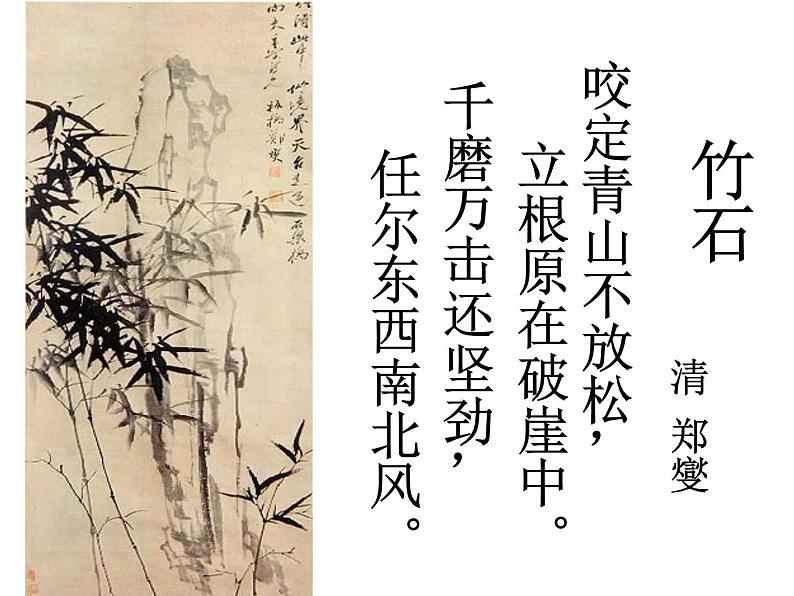 竹石
清 郑燮
咬定青山不放松，
立根原在破崖中。
千磨万击还坚劲，
任尔东西南北风。
板桥郑燮